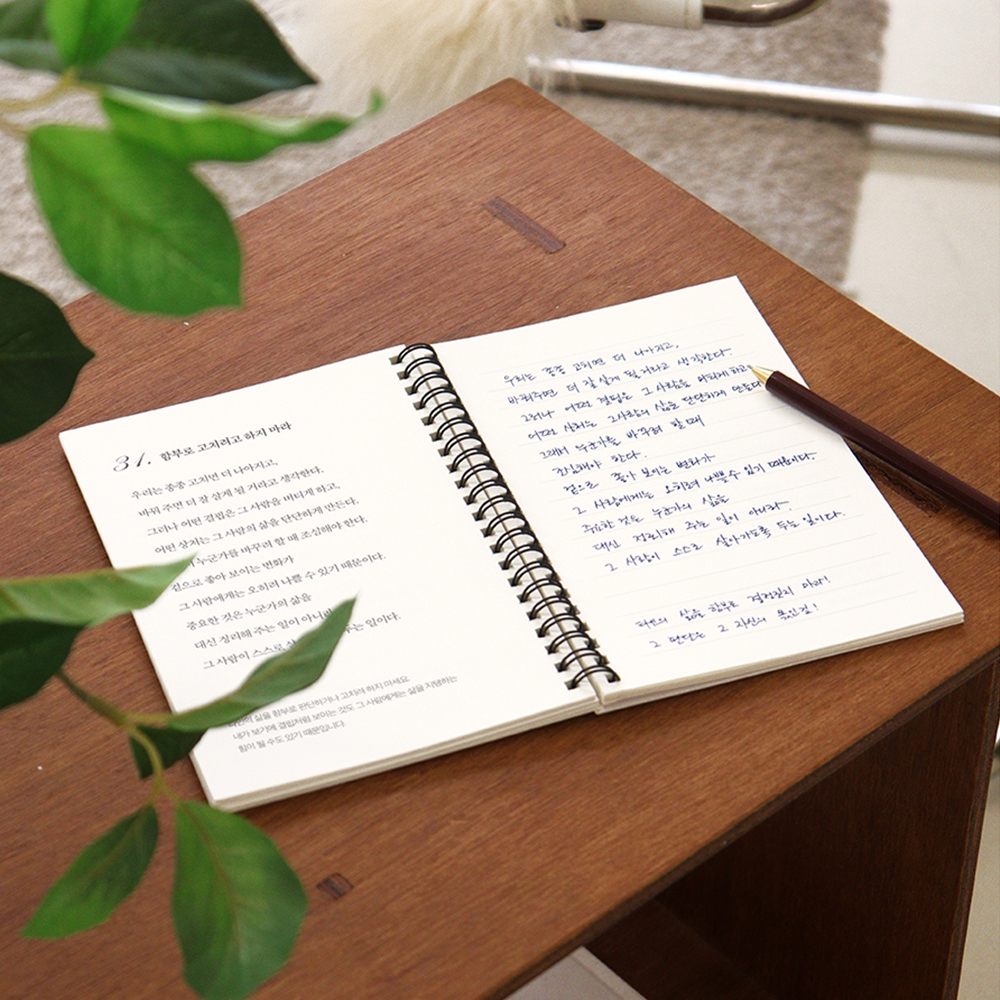 31. 함부로 고치려고 하지 마라
우리는 종종 고치면 더 나아지고,
바꿔 주면 더 잘 살게 될 거라고 생각한다.
그러나 어떤 결핍은 그 사람을 버티게 하고,
어떤 상처는 그 사람의 삶을 단단하게 만든다.
누군가를 바꾸려 할 때 조심해야 한다.
겉으로 좋아 보이는 변화가
그 사람에게는 오히려 나쁠 수 있기 때문이다.
중요한 것은 누군가의 삶을
대신 정리해 주는 일이 아니라
그 사람이 스스로 두는 일이다.
삶을 함부로 판단하거나 고치려 하지 마세요.
내가 보기에 결핍처럼 보이는 것도 그 사람에게는 삶을 지탱하는
힘이 될 수도 있기 때문입니다.
우리는 종종 고치면 더 나아지고,
바꿔주면 더 잘 살게 될 거라고 생각한다.
그러나 어떤 결핍은 그 사람을 버티게 하고
어떤 상처는 그 사람의 삶을 단단하게 만든다
그래서 누군가를 바꾸려 할 때
조심해야 한다.
겉으로 좋아 보이는 변화가
그 사람에게는 오히려 나쁠 수 있기 때문이다.
중요한 것은 누군가의 삶을
대신 정리해 주는 일이 아니라,
그 사람이 스스로 살아가도록 두는 일이다.
타인의 삶을 함부로 결정짓지 마라!
그 판단은 그 자신의 몫인걸!